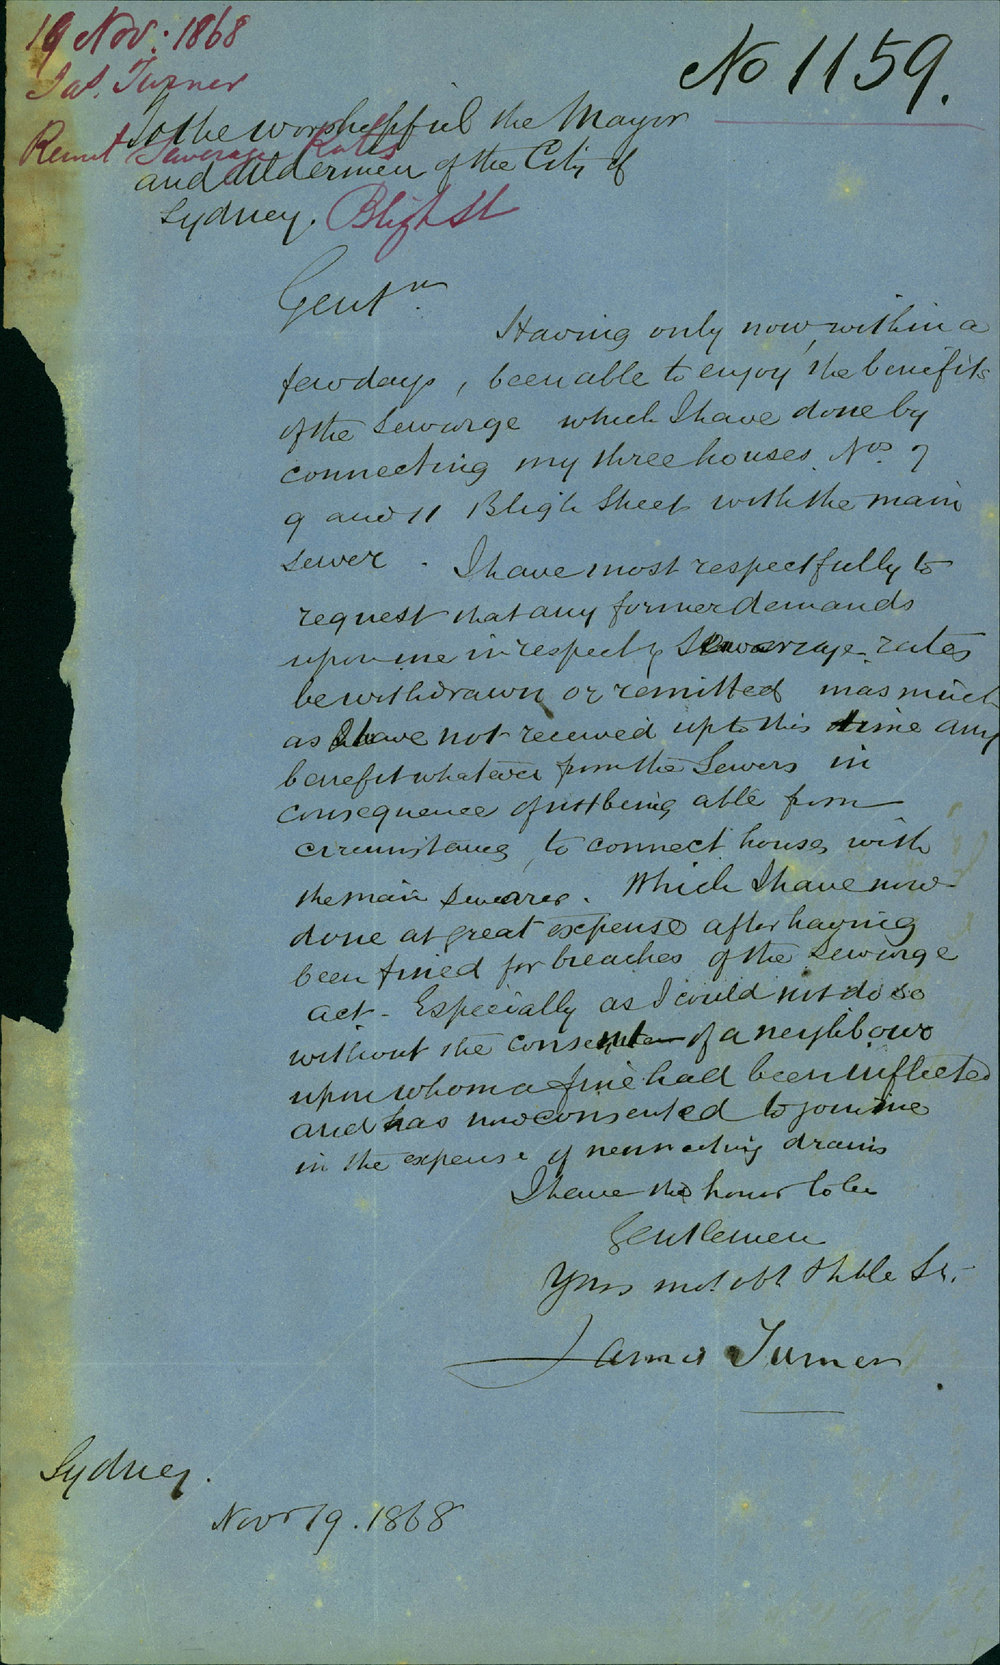 19 Nov: 1868
Jas. Turner
Remit Sewerage Rates
Bligh St
No 1159.
To the worshepful the Mayor
and Aldermen of the City of
Sydney.
Gentn
Having only now, within a
few days, been able to enjoy the benefits
of the Sewarge which I have done by
connecting my three houses Nos 7
9 and 11 Bligh Street with the main
sewer. I have most respectfully to
request that any former demands
upon me in respect of Sewarage rates
be withdrawn or remitted inasmuch
as I have not received up to this time any
benefit whatever from the Sewers in
consequence of not being able from
circumstances, to connect houses with
the main sewarer. Which I have now
done at great expense after having
been fined for breaches of the Sewarge
act - Especially as I could not do so
without the consent of a neighbour
upon whom a fine had been inflicted
and has now consented to join me
in the expense of connecting drains
I have the honor to be
Gentlemen
Yrs most obt Hble St.
James Turner
Sydney.
Novr 19. 1868